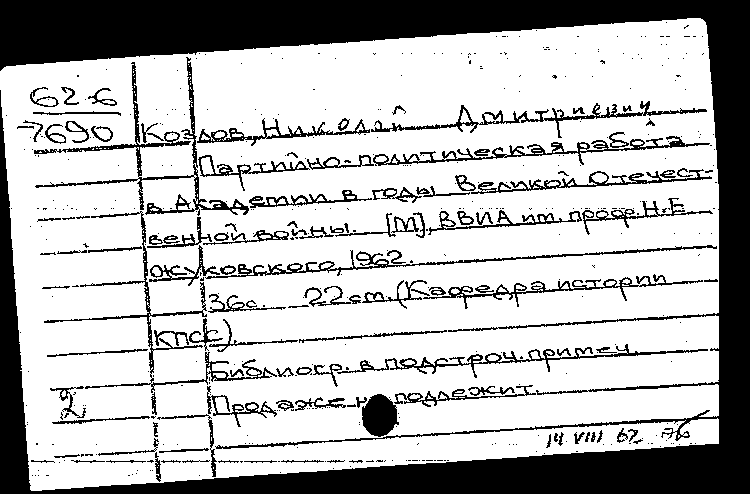 62-6
7690
Козлов, Николай Дмитриевич
Партийно-политическая работа
в Академии в годы Великой Отечест-
венной войны. [М], ВВИА им. проф. Н.Е
Жуковского, 1962.
36с. 22см. (Кафедра истории
КПСС).
Библиогр. в подстроч. примеч.
2
Продаже не подлежит.
14 VIII 62